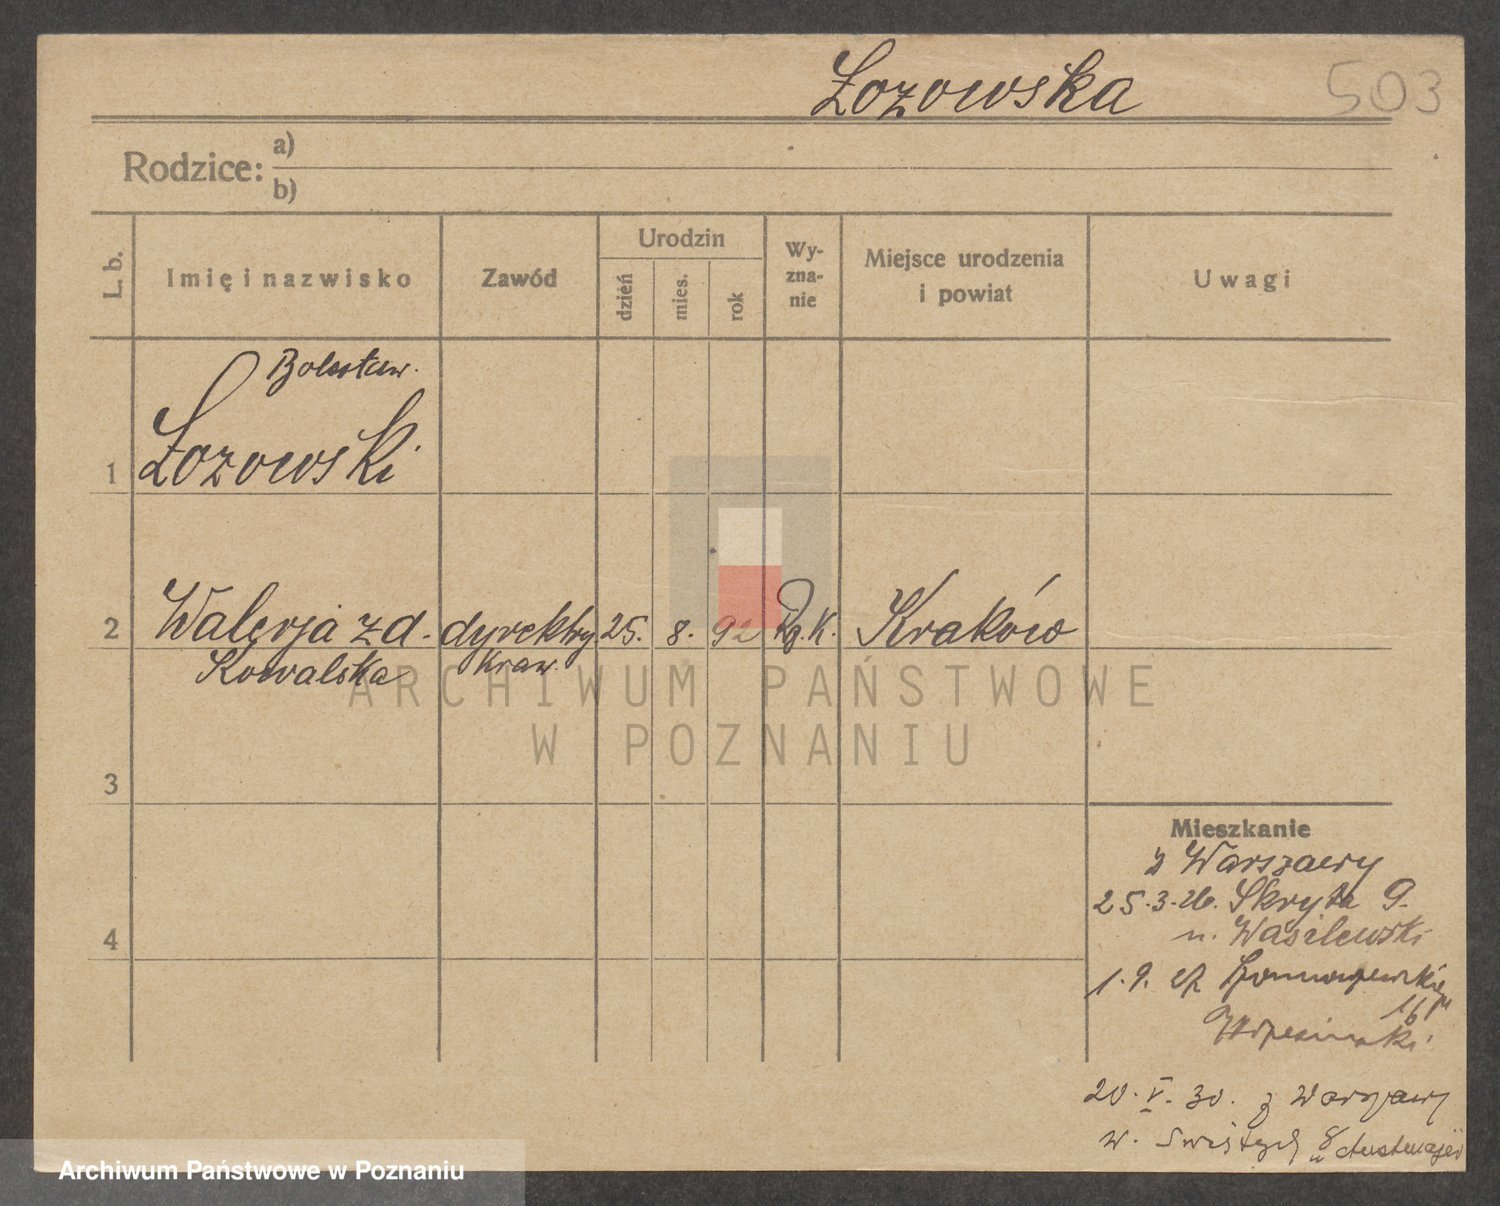 Łozowska 503
Rodzice: a)
b)
L. b.
Imię i nazwisko
Zawód
Urodzin
dzień
mies.
rok
Wy-
zna-
nie
Miejsce urodzenia
i powiat
Uwagi
Bolesław.
1 Łozowski
2 Walerja zd. dyrektry 25. 8. 92 Rz. K. Kraków
Kowalska kraw.
3
4
Mieszkanie
z Warszawy
25.3.26. Skryta 9.
u. Wasilewski
1.9.
20. V. 30. z Warszawy
w. Świętych 8
ARCHIWUM PAŃSTWOWE
W POZNANIU
Archiwum Państwowe w Poznaniu